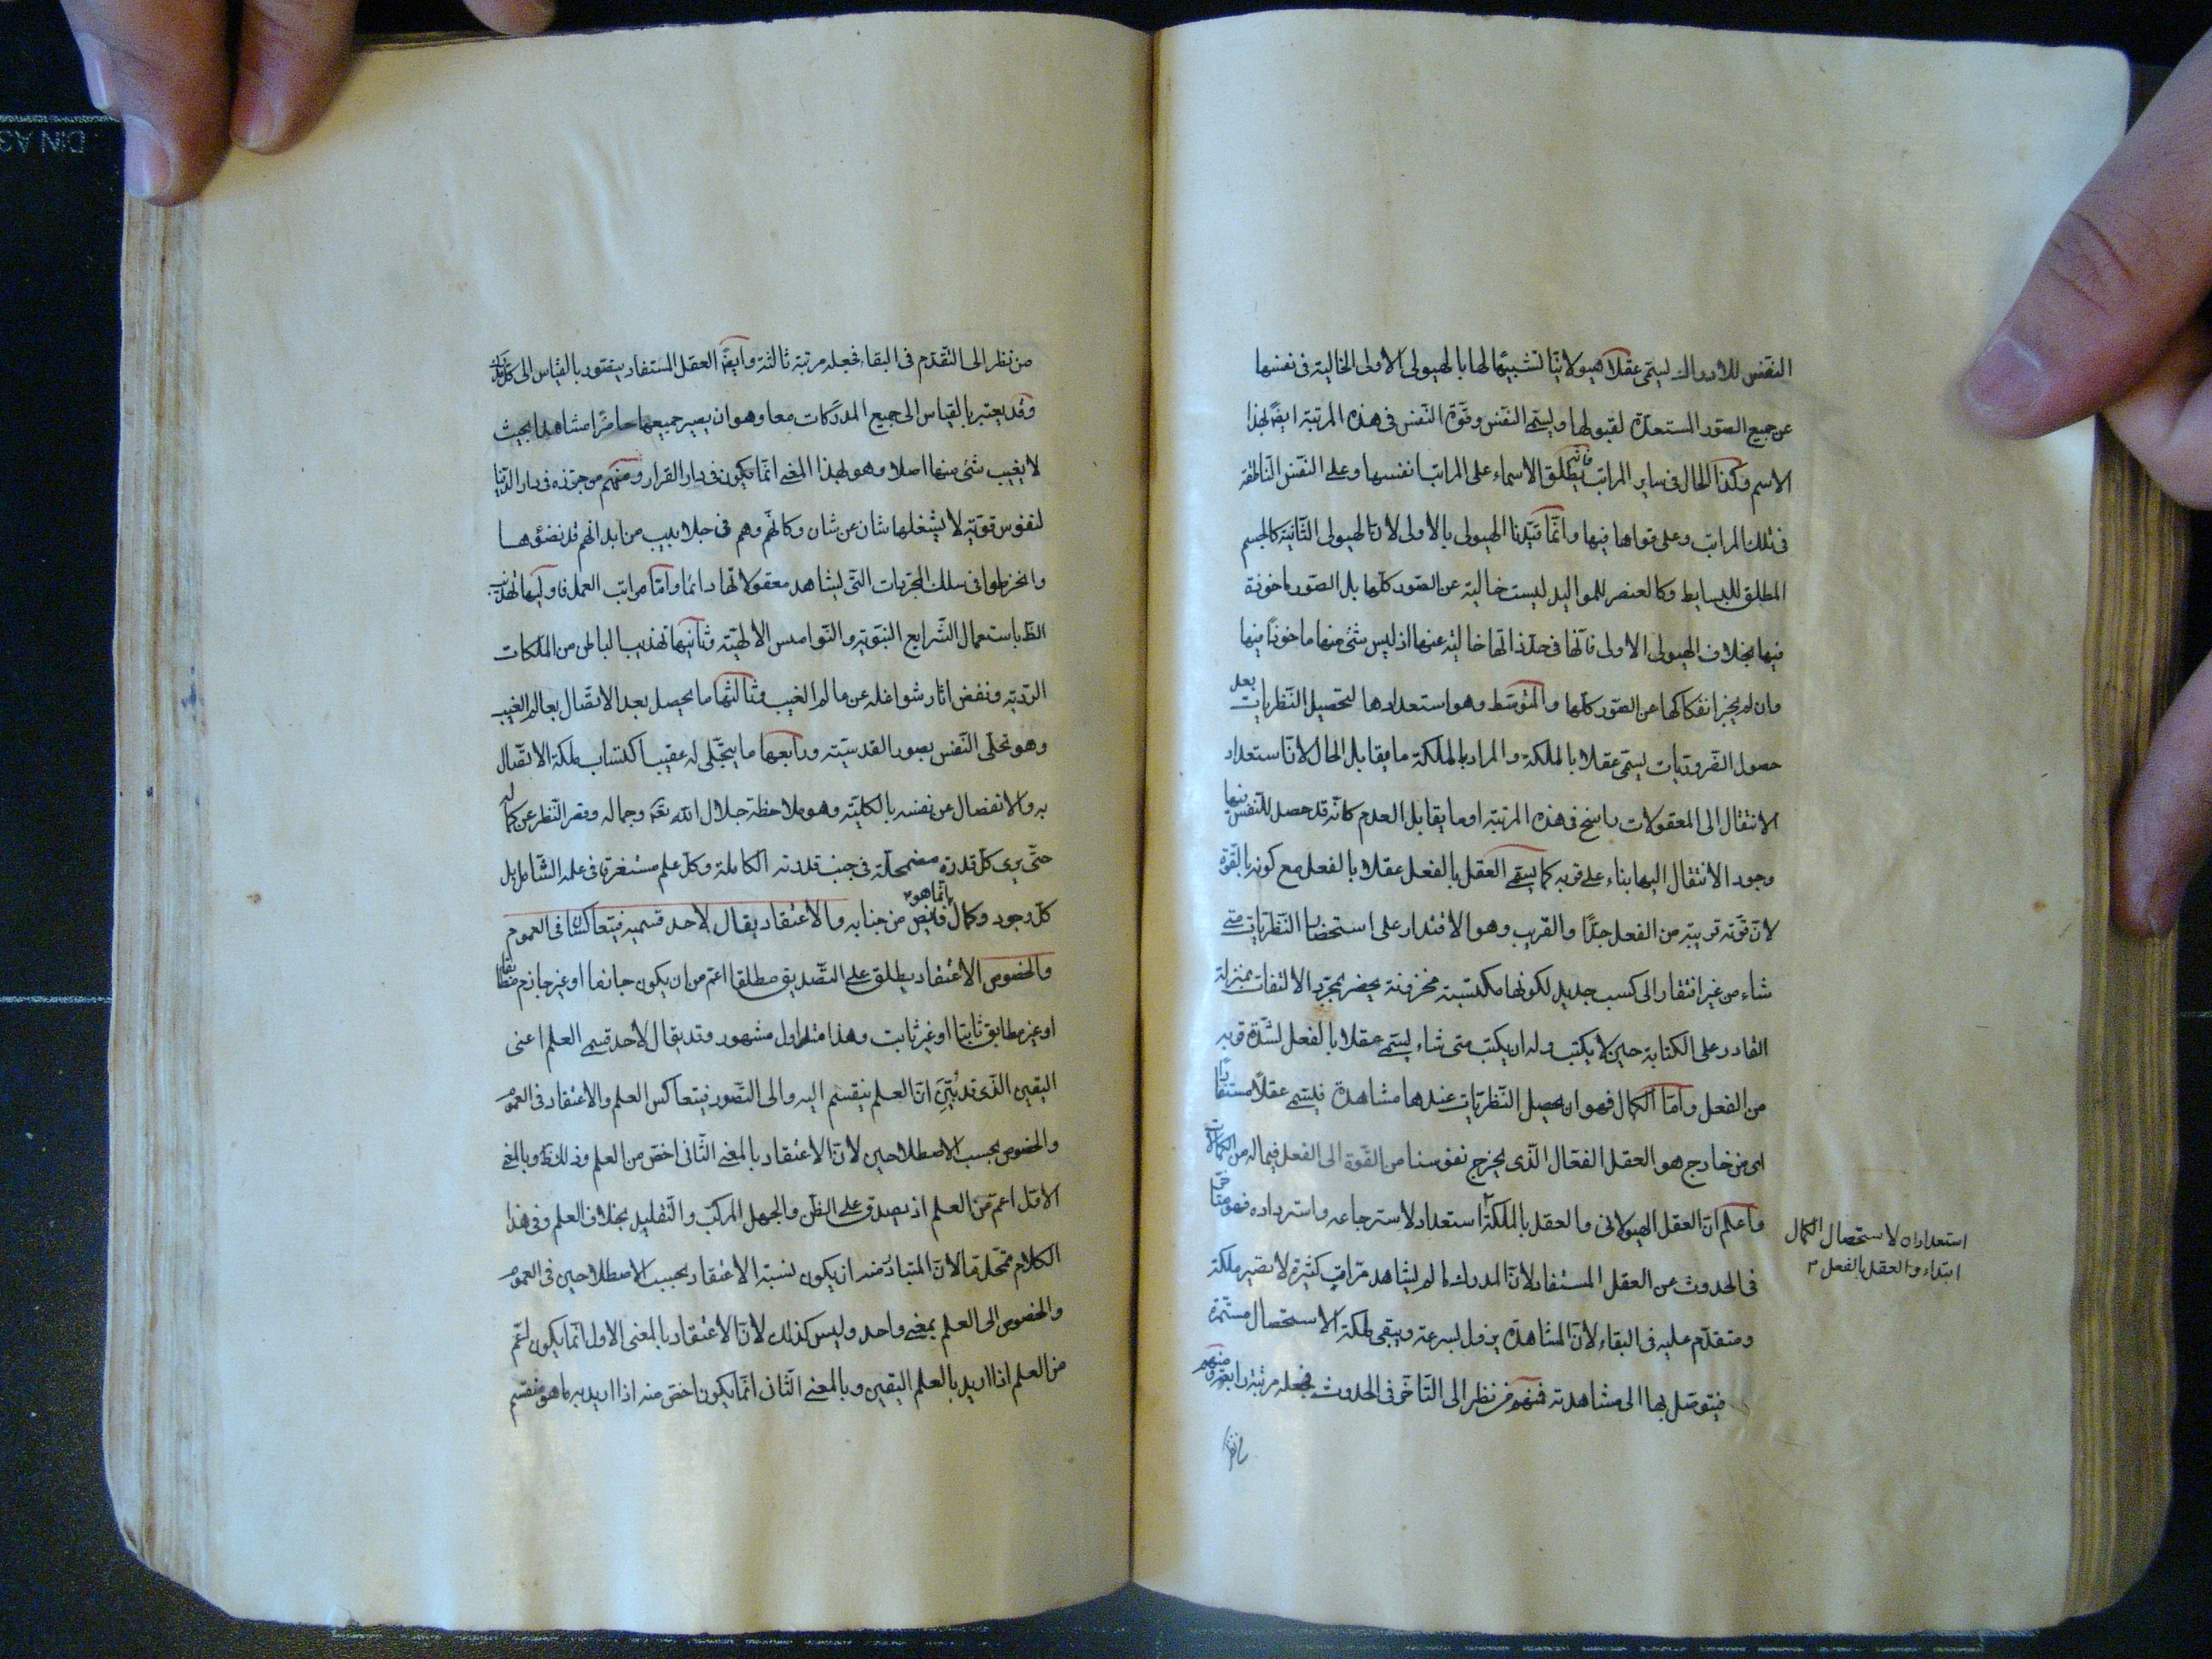 النفس للادراك ليسمى عقلا هيولانيا تشبيها لها بالهيولى الاولى الخالية فى نفسها
عن جميع الصور المستعدة لقبولها وليسمى النفس وقوة النفس فى هذه المرتبة ايضا بهذا
الاسم وكذا الحال فى ساير المراتب فانه يطلق الاسماء على المراتب انفسها وعلى النفس الناطقة
فى تلك المراتب وعلى قواها فيها وانما قيدنا الهيولى بالاولى لان الهيولى الثانية كالجسم
المطلق للبسايط وكالعنصر للمواليد ليست خالية عن الصور كلها بل الصور ماخوذة
فيها بخلاف الهيولى الاولى فانها فى حد ذاتها خالية عنها اذ ليس شئ منها ماخوذا فيها
وان لم يجز انفكاكها عن الصور كلها والمتوسط وهو استعدادها لتحصيل النظريات بعد
حصول الضروريات يسمى عقلا بالملكة والمراد بالملكة ما يقابل الحال لان استعداد
الانتقال الى المعقولات راسخ فى هذه المرتبة او ما يقابل العدم كانه قد حصل للنفس فيها
وجود الانتقال اليها بناء على قربه كما يسمى العقل بالفعل عقلا بالفعل مع كونه بالقوة
لان قوته قريبة من الفعل جدا والقريب وهو الاقتدار على استحضار النظريات متى
شاء من غير افتقار الى كسب جديد لكونها مكتسبة مخزونة يحضر بمجرد الالتفات بمنزلة
القادر على الكتابة حين لا يكتب وله ان يكتب متى شاء يسمى عقلا بالفعل لشدة قربه
من الفعل واما الكمال فهو ان يحصل النظريات عندها مشاهدة فليسمى عقلا مستفادا
اى من خارج هو العقل الفعال الذى يخرج نفوسنا من القوة الى الفعل فيما له من الكمالات
واعلم ان العقل الهيولانى والعقل بالملكة استعداد لاسترجاعه واسترداده فهو متاخر
استعدادان لاستحصال الكمال
ابتداء والعقل بالفعل
فى الحدوث عن العقل المستفاد لان المدرك ما لم يشاهد مرات كثيرة لا تصير ملكة
ومتقدم عليه فى البقاء لان المشاهدة يزول بسرعة ويبقى ملكة الاستحصال مستمرة
فيتوصل بها الى مشاهدته فمنهم من نظر الى التاخر فى الحدوث فجعله مرتبة رابعة ومنهم
من نظر
من نظر الى التقدم فى البقاء فجعله مرتبة ثالثة وايضا العقل المستفاد يتصور بالقياس الى كل مدرك
وقد يعتبر بالقياس الى جميع المدركات معا وهو ان يصير جميعها حاضرا مشاهدا بحيث
لا يغيب شئ منها اصلا وهو بهذا المعنى انما يكون فى دار القرار ومنهم من جوزه فى دار الدنيا
لنفوس قوية لا يشغلها شان عن شان وكانهم وهم فى جلابيب من ابدانهم قد نضوها
وانخرطوا فى سلك المجردات التى يشاهد معقولاتها دائما واما مراتب العمل فاوليها تهذيب
الظ باستعمال الشرايع النبوية والنواميس الالهية وثانيها تهذيب الباطن من الملكات
الردية ونفض اثار شواغله عن عالم الغيب وثالثها ما يحصل بعد الاتصال بعالم الغيب
وهو تحلى النفس بصور القدسية ورابعها ما يتجلى له عقيب اكتساب ملكة الاتصال
به والانفصال عن نفسه بالكلية وهو ملاحظة جلال الله تعه وجماله وقصر النظر عن كماله
حتى يرى كل قدرة مضمحلة فى جنب قدرته الكاملة وكل علم مستغرقا فى علمه الشامل بل
كل وجود وكمال انما هو فايض من جنابه والاعتقاد يقال لاحد قسميه فيتعاكسان فى العموم
والخصوص الاعتقاد يطلق على التصديق مطلقا اعم من ان يكون جازما او غير جازم مطابقا
او غير مطابق ثابتا او غير ثابت وهذا متداول مشهور وقد يقال لاحد قسمى العلم اعنى
اليقين الذى قد بُيّن ان العلم ينقسم اليه والى التصور فيتعاكس العلم والاعتقاد فى العموم
والخصوص بحسب الاصطلاحين لان الاعتقاد بالمعنى الثانى اخص من العلم وذلك ظ وبالمعنى
الاول اعم من العلم اذ يصدق على الظن والجهل المركب والتقليد بخلاف العلم وفى هذا
الكلام تمحل ما لان المتبادر منه ان يكون لنسبة الاعتقاد بحسب الاصطلاحين فى العموم
والخصوص الى العلم بمعنى واحد وليس كذلك لان الاعتقاد بالمعنى الاول انما يكون اعم
من العلم اذا اريد بالعلم اليقين وبالمعنى الثانى انما يكون اخص منه اذا اريد به ما هو منقسم